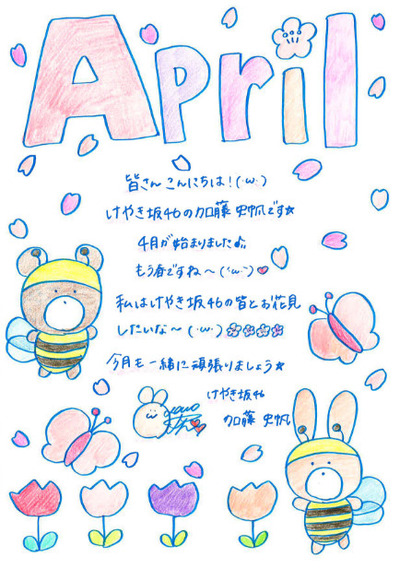 April
皆さんこんにちは!(・ω・)
けやき坂46の加藤 史帆です☆
4月が始まりました♪
もう春ですね〜(・ω・)♥
私はけやき坂46の皆とお花見
したいな〜(・ω・)
今月も一緒に頑張りましょう☆
けやき坂46
加藤 史帆